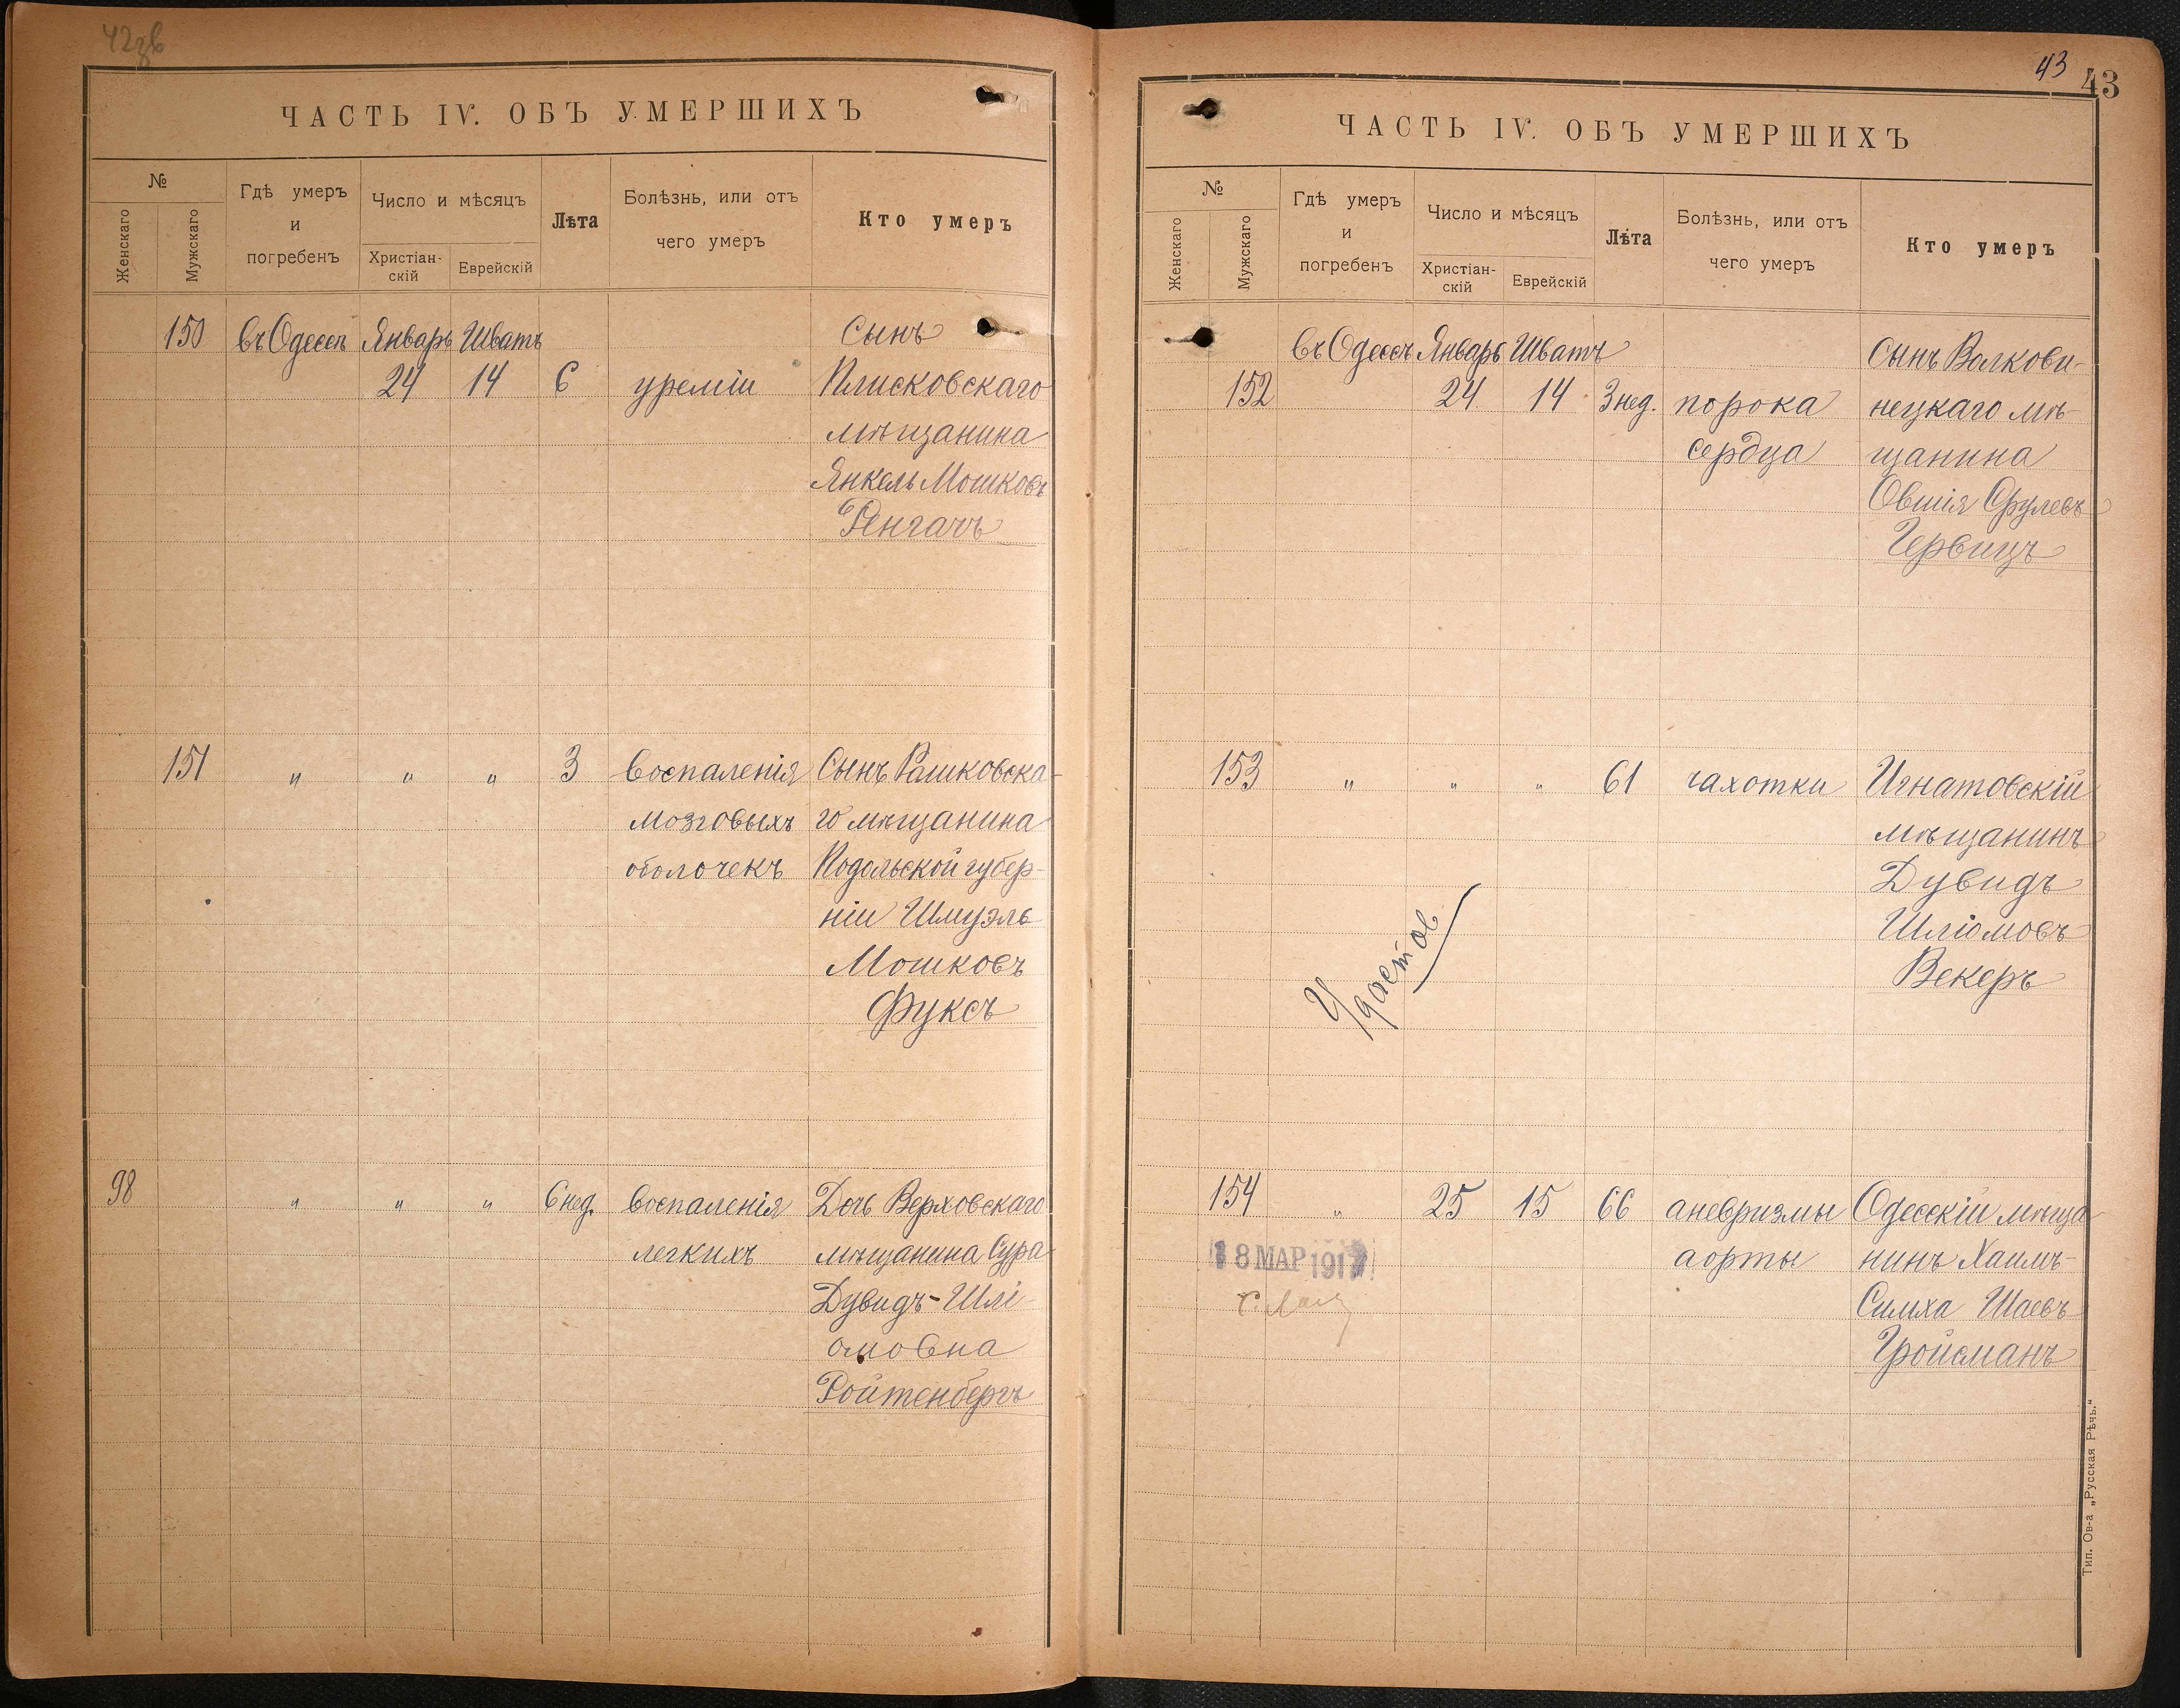 42зв
ЧАСТЬ IV. ОБЪ УМЕРШИХЪ
№
Женскаго
Мужскаго
Гдѣ умеръ
и
погребенъ
Число и мѣсяцъ
Христіан-
скій
Еврейскій
Лѣта
Болѣзнь, или отъ
чего умеръ
Кто умеръ
150 въ Одессѣ Январь Шватъ Сынъ
24 14 6 уреміи Плисковскаго
мѣщанина
Янкель Мошковъ
Ренгачъ
151 " " " 3 воспаленія Сынъ Рашковска-
мозговыхъ го мѣщанина
оболочекъ Подольской губер-
ніи Шмуэль
Мошковъ
Фуксъ
98 " " " 6 нед. воспаленія Дочь Верховскаго
легкихъ мѣщанина Сура
Дувидъ-Шлі-
омовна
Ройтенбергъ
43
43
ЧАСТЬ IV. ОБЪ УМЕРШИХЪ
№
Женскаго
Мужскаго
Гдѣ умеръ
и
погребенъ
Число и мѣсяцъ
Христіан-
скій
Еврейскій
Лѣта
Болѣзнь, или отъ
чего умеръ
Кто умеръ
въ Одессѣ Январь Шватъ Сынъ Волкови-
152 24 14 3 нед. порока нецкаго мѣ-
сердца щанина
Овшія Срулевъ
Гервицъ
153 " " " 61 чахотки Игнатовскій
мѣщанинъ
Дувидъ
Шліомовъ
Векеръ
Удостов
154 " 25 15 66 аневризмы Одесскій мѣща-
18 МАР 191 аорты нинъ Хаимъ-
Симха Шаевъ
Гройсманъ
Тип. Ов-а „Русская Рѣчь.“